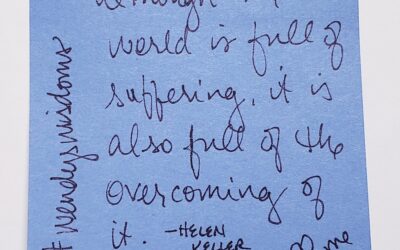 although the
world is full of
suffering, it is
also full of the
overcoming of
it. -HELEN
KELLER
#wendyswisdoms